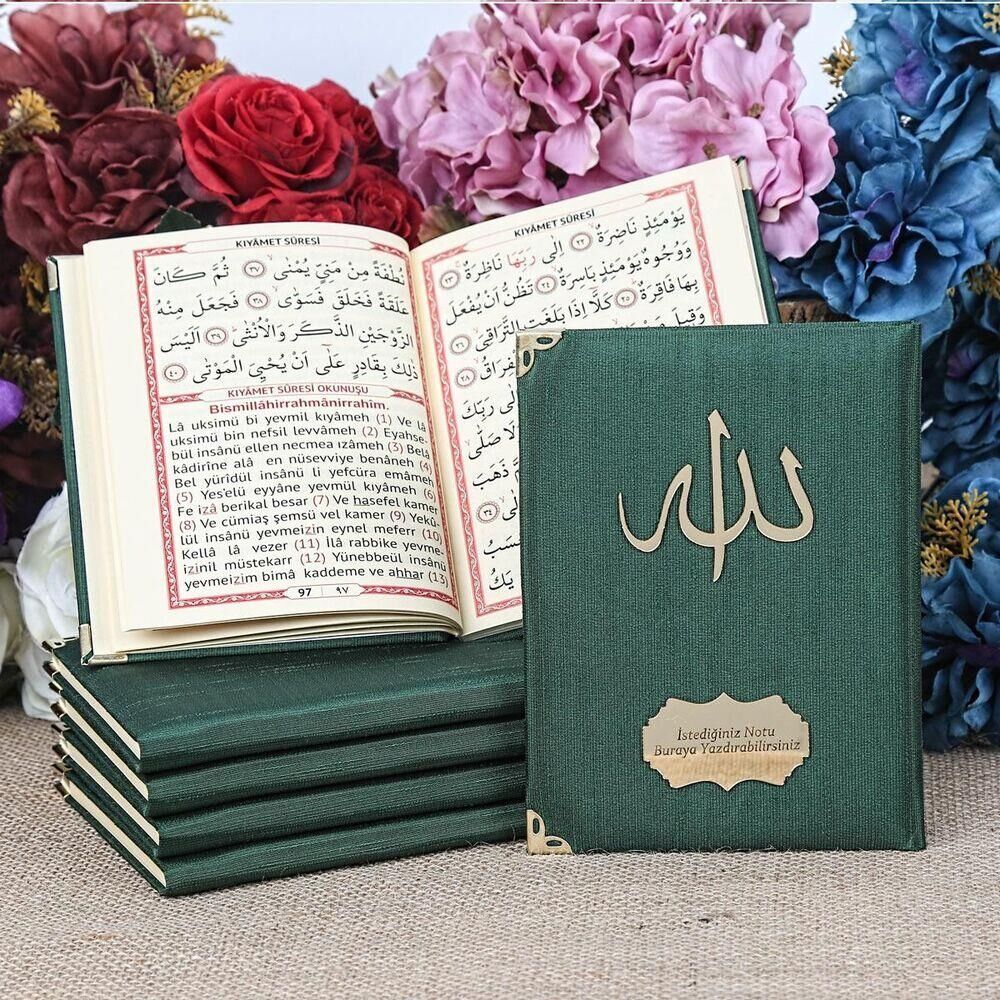 KIYÂMET SÛRESİ
نُطْفَةً مِنْ مَنِيٍّ يُمْنٰىۙ ﴿٣٧﴾ ثُمَّ كَانَ
عَلَقَةً فَخَلَقَ فَسَوّٰىۙ ﴿٣٨﴾ فَجَعَلَ مِنْهُ
الزَّوْجَيْنِ الذَّكَرَ وَالْاُنْثٰىۜ ﴿٣٩﴾ اَلَيْسَ
ذٰلِكَ بِقَادِرٍ عَلٰٓى اَنْ يُحْيِيَ الْمَوْتٰى ﴿٤٠﴾
KIYÂMET SÛRESİ OKUNUŞU
Bismillâhirrahmânirrahîm.
Lâ uksimü bi yevmil kıyâmeh (1) Ve lâ
uksimü bin nefsil levvâmeh (2) Eyahse-
bül insânü ellen necmea ızâmeh (3) Belâ
kâdirîne alâ en nüsevviye benâneh (4)
Bel yürîdül insânü li yefcüra emâmeh
(5) Yes'elü eyyâne yevmül kıyâmeh (6)
Fe izâ berikal besar (7) Ve hasefel kamer
(8) Ve cümiaş şemsü vel kamer (9) Yekû-
lül insânü yevmeizin eynel meferr (10)
Kellâ lâ vezer (11) İlâ rabbike yevme-
izinil müstekarr (12) Yünebbeül insânü
yevmeizim bimâ kaddeme ve ahhar (13)
97 ٩٧
KIYÂMET SÛRESİ
يَوْمَئِذٍ نَاضِرَةٌۙ ﴿٢٢﴾ اِلٰى رَبِّهَا نَاظِرَةٌۚ ﴿٢٣﴾
وَوُجُوهٌ يَوْمَئِذٍ بَاسِرَةٌۙ ﴿٢٤﴾ تَظُنُّ اَنْ يُفْعَلَ
بِهَا فَاقِرَةٌۜ ﴿٢٥﴾ كَلَّٓا اِذَا بَلَغَتِ التَّرَاقِيَۙ ﴿٢٦﴾
وَقِيلَ
الْفِرَاقُۙ ﴿٢٨﴾
اِلٰى رَبِّكَ
لَا صَلّٰىۙ
ذَهَبَ
﴿٣٤﴾
يَكُ
الله
İstediğiniz Notu
Buraya Yazdırabilirsiniz